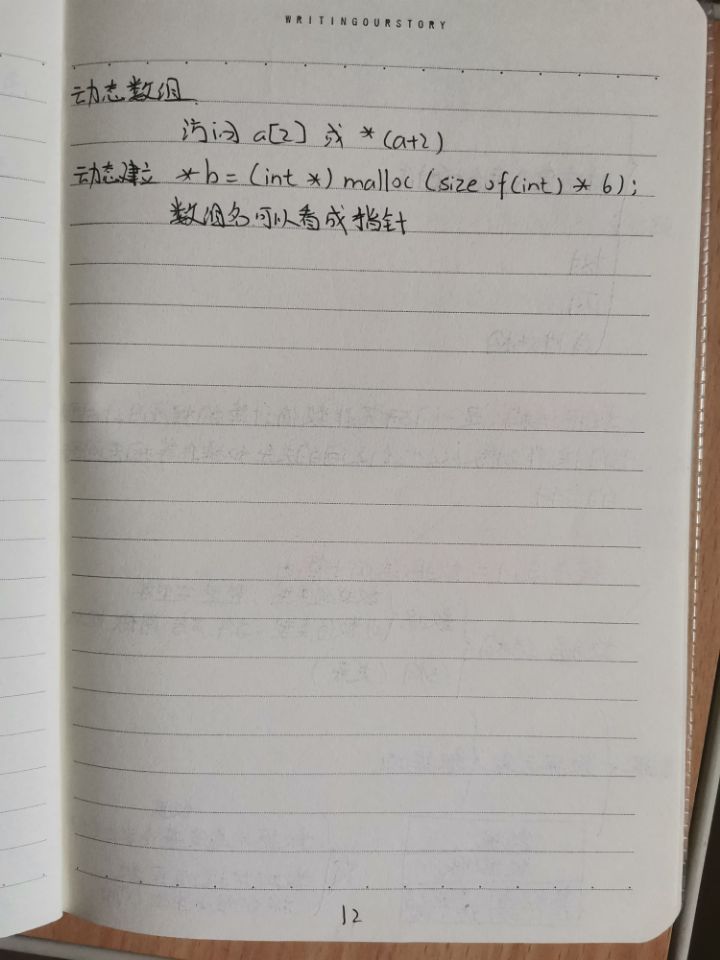 WRITINGOURSTORY
动态数组
访问 a[2] 或 *(a+2)
动态建立 *b=(int *) malloc (sizeof(int) * 6);
数组名可以看成指针
12